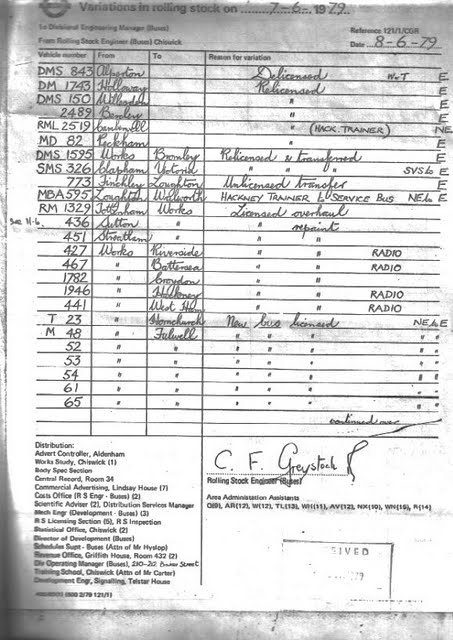 Variations in rolling stock on 7-6- 1979
To Divisional Engineering Manager (Buses)
From Rolling Stock Engineer (Buses) Chiswick
Reference 121/1/CGR
Date 8-6-79
Vehicle number From To Reason for variation
DMS 843 Alperton Delicensed WoT E
DM 1743 Holloway Relicensed E
DMS 150 Willesden " E
2489 Bexley " E
RML 2519 Camberwell " (HACK. TRAINER) NE
MD 82 Peckham " E
DMS 1595 Works Bromley Relicensed & transferred E
SMS 326 Clapham " " " SVS to E
773 Finchley Loughton Unlicensed transfer E
MBA 595 Loughton Walworth HACKNEY TRAINER to SERVICE BUS NE to E
RM 1329 Tottenham Works Licensed overhaul
436 Sutton " " repaint
451 Streatham " " "
427 Works Riverside " " RADIO
467 " Battersea " " RADIO
1782 " Croydon " "
1946 " Hackney " " RADIO
441 " West Ham " " RADIO
T 23 " Hornchurch New bus licensed NE to E
M 48 " Fulwell " " " " "
52 " " " " " " "
53 " " " " " " "
54 " " " " " " "
61 " " " " " " "
65 " " " " " " "
continued over
Distribution:
Advert Controller, Aldenham
Works Study, Chiswick (1)
Body Spec Section
Central Record, Room 34
Commercial Advertising, Lindsay House (7)
Costs Office (R S Engr - Buses) (2)
Scientific Adviser (2), Distribution Services Manager
Mech Engr (Development - Buses) (3)
R S Licensing Section (5), R S Inspection
Statistical Office, Chiswick (2)
Director of Development (Buses)
Schedules Supt - Buses (Attn of Mr Hyslop)
Revenue Office, Griffith House, Room 432 (2)
Div Operating Manager (Buses),
Training School, Chiswick (Attn of Mr Carter)
Development Engr, Signalling, Telstar House
C. F. Greystock
Rolling Stock Engineer (Buses)
Area Administration Assistants
Q(9), AR(12), W(12), TL(13), WH(11), AV(12), NX(10), WN(15), R(14)